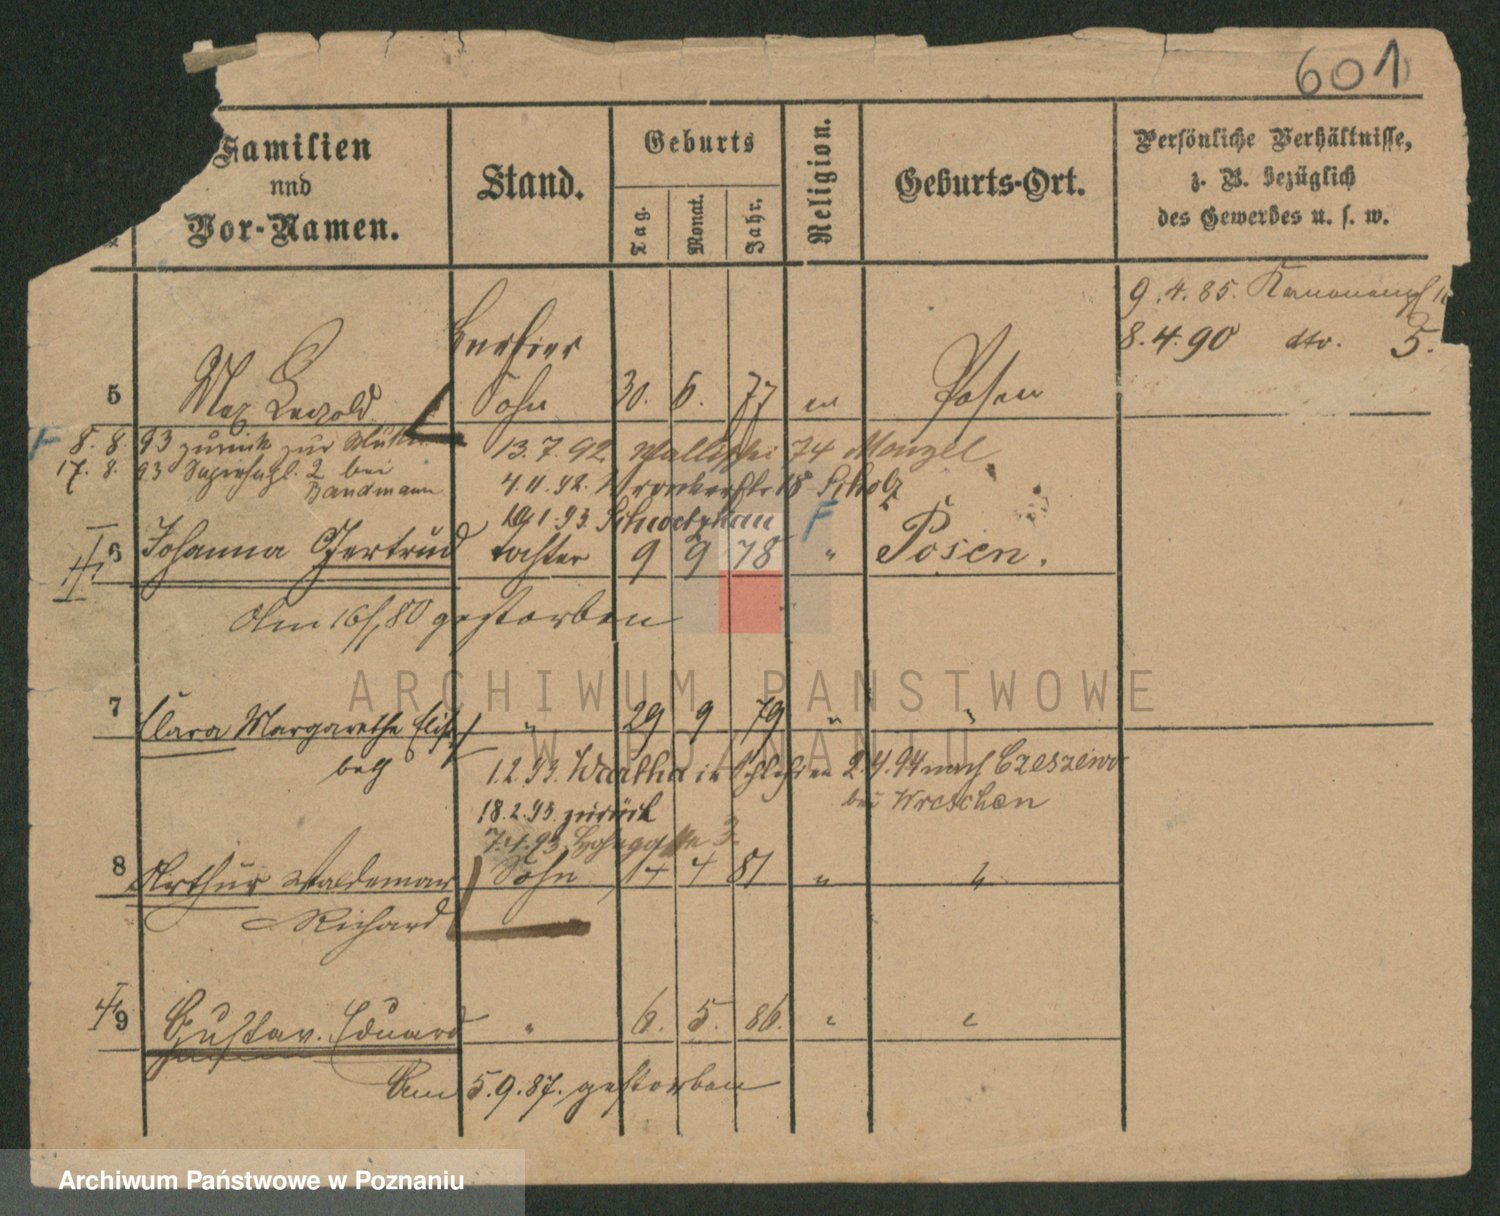 601
Familien
und
Vor-Namen.
Stand.
Geburts
Tag.
Monat.
Jahr.
Religion.
Geburts-Ort.
Persönliche Verhältnisse,
z. B. bezüglich
des Gewerbes u. s. w.
9.4.85.
8.4.90 dto. 5.
5 Max Leopold Sohn 30. 6. 77 ev Posen
8. 8. 93 zurück zur Mutter 13.7.92 Wallischei 74 Menzel
17. 8. 93 Sapiehapl. 2 bei
Bandmann 4.11.92. 18 Scholz
19.1.93. Schwetzkau F
6 Johanna Gertrud Tochter 9 9 78 " Posen.
Am 16/, 80 gestorben
7 Clara Margarethe Elisa " 29 9 79 " "
beth
1.2.93. Wartha in Schlesien 2.4.94 nach Czeszewo
bei Wreschen
18.2.93. zurück
7.4.93 3.
8 Arthur Waldemar Sohn 14 4 81 " "
Richard
9 Gustav. Eduard " 6. 5. 86. " "
Am 5.9.87. gestorben
ARCHIWUM PAŃSTWOWE
W POZNANIU
Archiwum Państwowe w Poznaniu